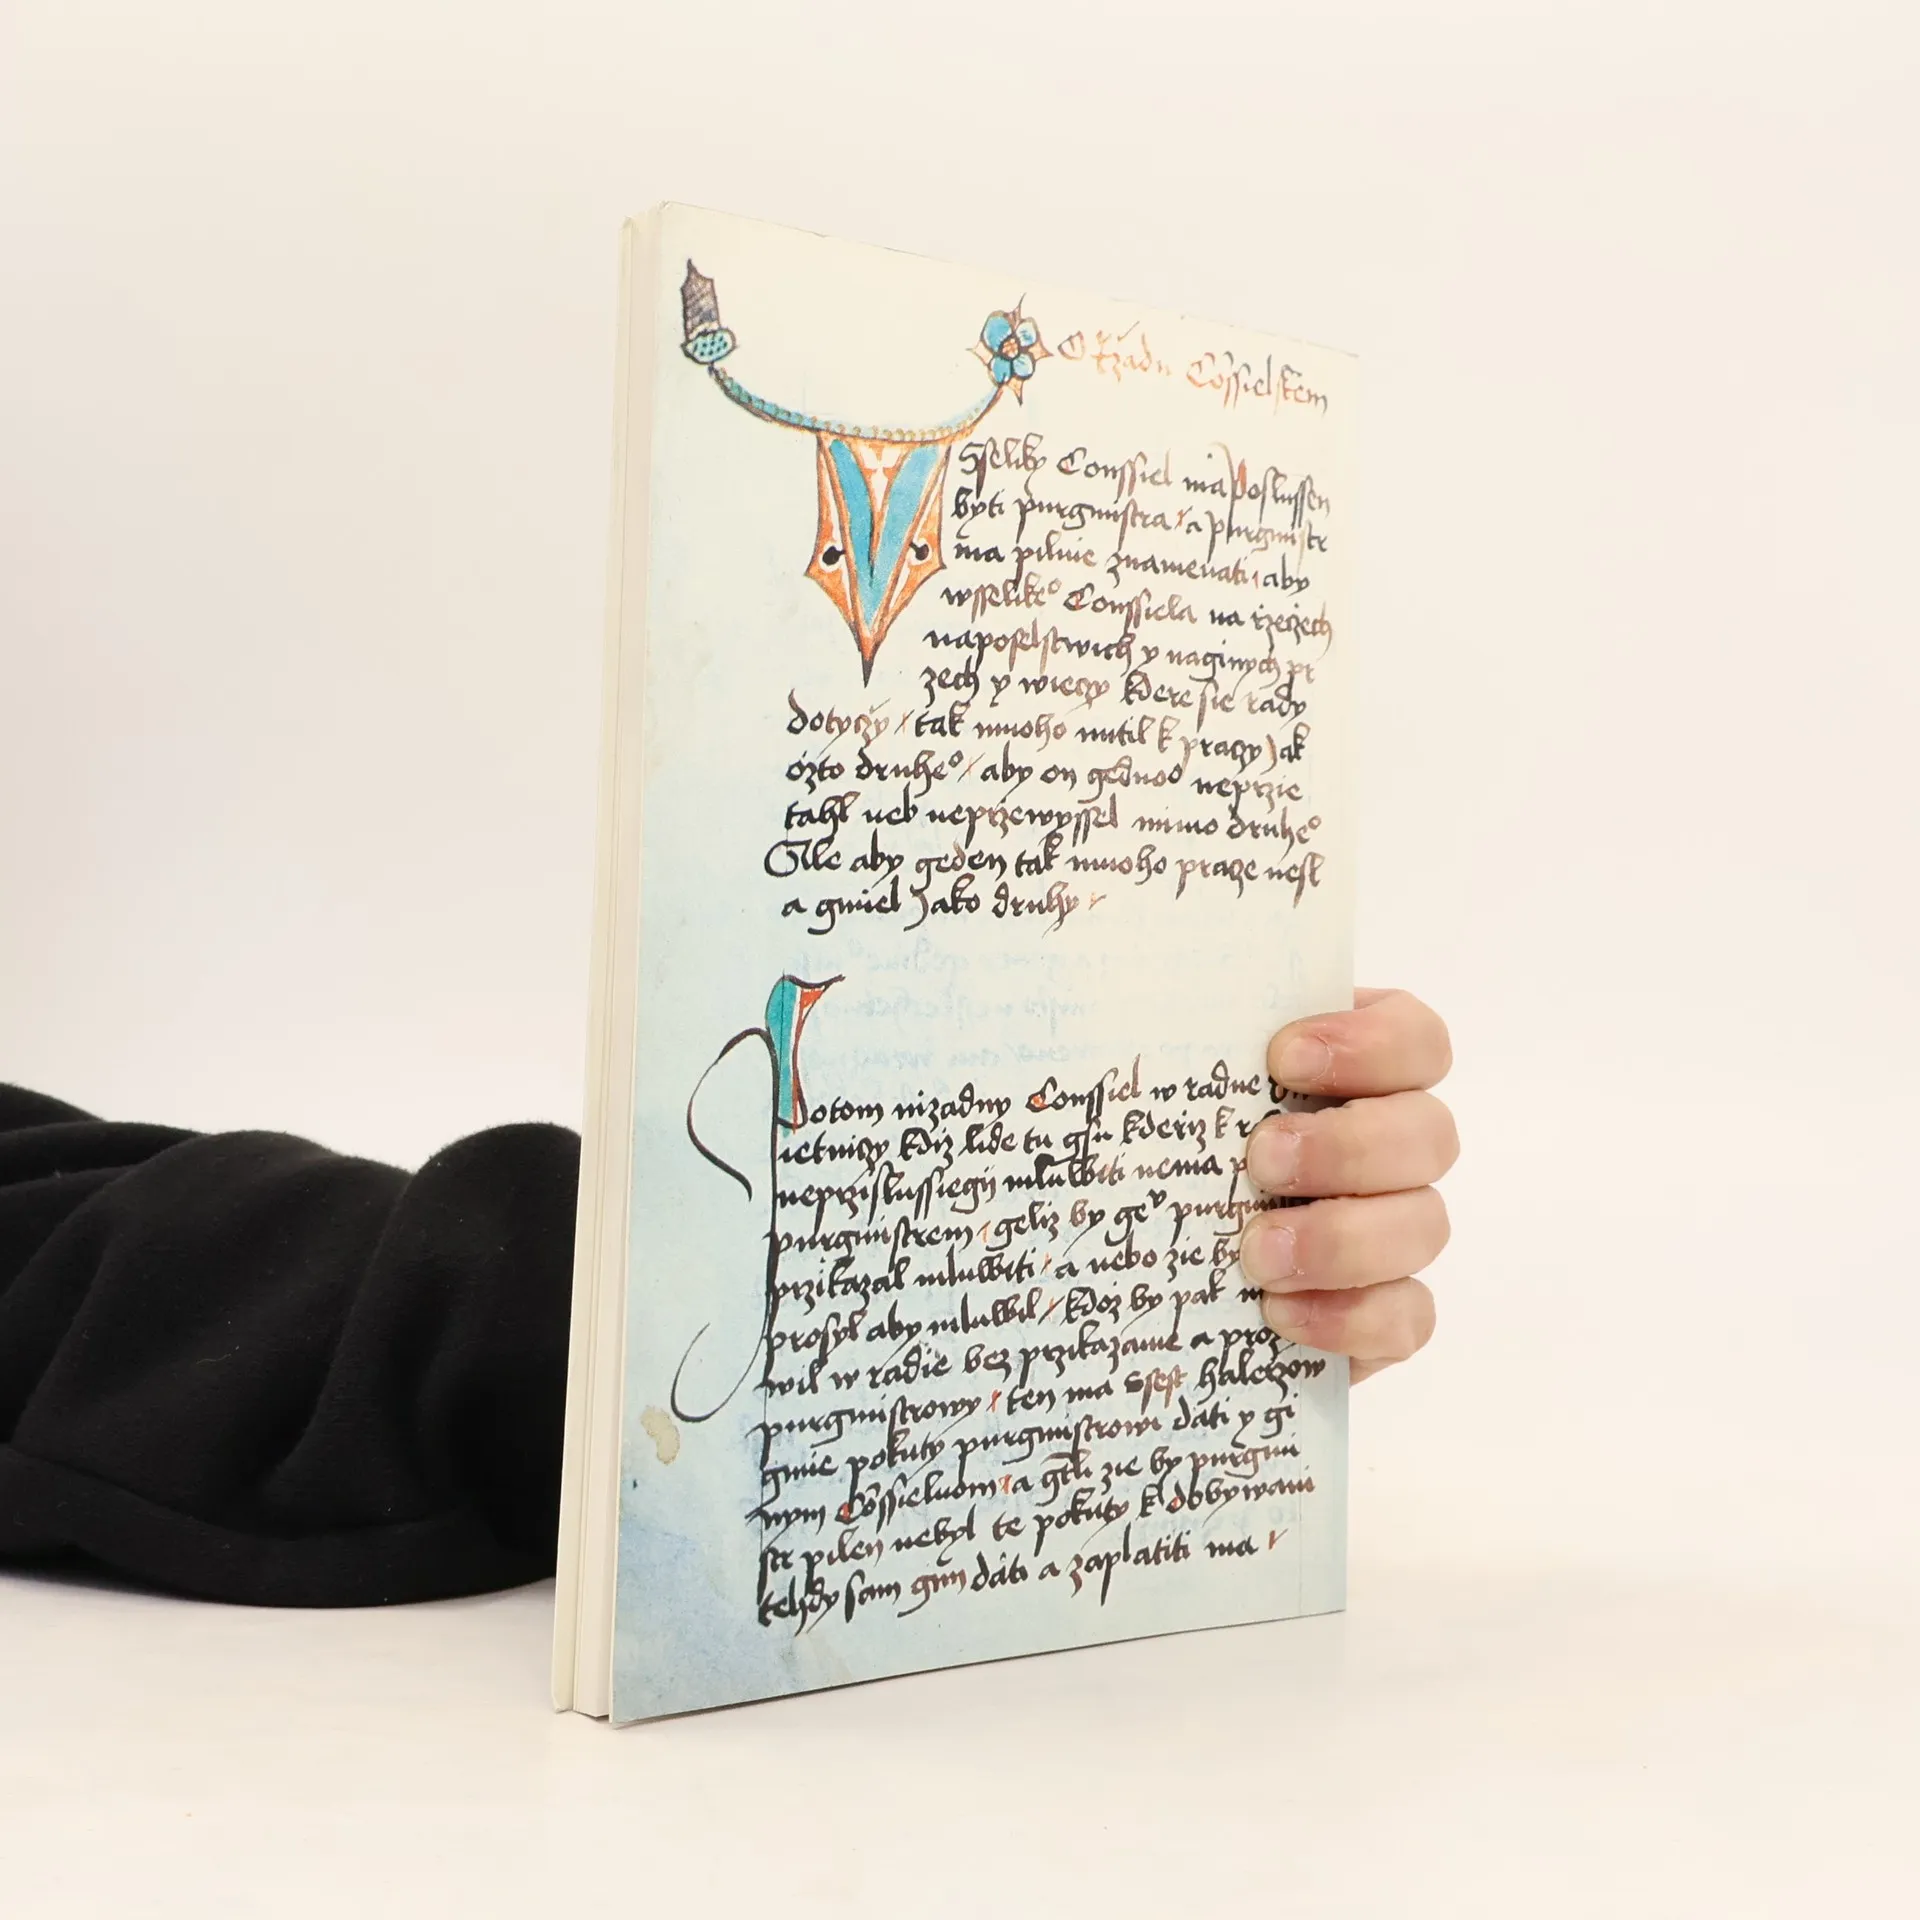 O rzadu Cōssielskem
Wsseliky Conssiel ma poslussen
byti purgmistra / a purgmistr
ma pilnie znamenati / aby
wsselikeº Conssiela na rzeczech
naposelstwich y naginych pr
zech y wieczy kdere sie rady
dotyczy / tak mnoho nutil k praczy Jak
ozto druheº / aby on gednoº neprzie
tahl neb neprzewyssel mimo druheº
Ale aby geden tak mnoho pracze nesl
a gmiel Jako druhy
Potom nizadny Conssiel w radne
ietniczy kdiz lide tu gsu kderiz k
neprzislussiegij mluwiti nema
purgmistrem / geliz by geᵛ
przikazal mluwiti / a nebo zie by
prosyl aby mluwil / kdoz by pak
wil w radie bez przikazanie a
purgmistrowy / ten ma ssest halerzow
gmie pokuty purgmistrowi dati y gi
nym Cōssieluom / a gtli zie by purgmi
str pilen nebyl te pokuty k dobywani
tehdy sam gim dati a zaplatiti ma